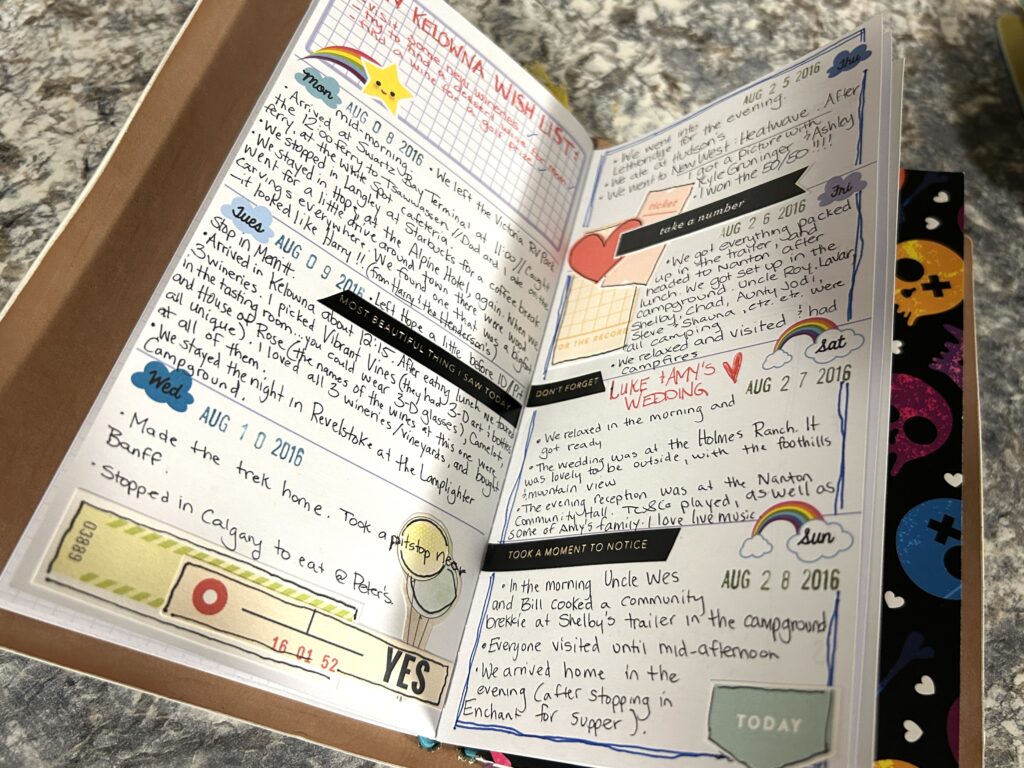 KELOWNA WISH LIST:
- visit some new wineries
- try to find a dessert wine, for me,
and a wine for back home, for
a golf prize.
Mon
AUG 08 2016
• We left the Victoria RV Park
mid-morning
• Arrived at Swartz Bay Terminal at 11:00 // Caught
the 12:00 ferry to Tsawwassen // Dad and I ate on the
ferry, at the White Spot cafeteria.
• We stopped in Langley at Starbucks for a coffee break.
• We stayed in Hope, at the Alpine Hotel, again. When we
went for a little drive around town there were wood
carvings everywhere. We found one that was a Bigfoot
- it looked like Harry!! (from Harry & the Hendersons)
Tues
AUG 09 2016
• Left Hope a little before 10/Pit
Stop in Merritt
• Arrived in Kelowna about 12:15. After eating lunch we toured
3 wineries. I picked Vibrant Vines (they had 3-D art & bottles
in the tasting room. you could wear 3-D glasses), Camelot,
and House of Rose (the names of the wines at this one were
all unique). I loved all 3 winery/vineyards, and bought
at all of them.
• We stayed the night in Revelstoke at the Lamplighter
Campground.
MOST BEAUTIFUL THING I SAW TODAY
Wed
AUG 10 2016
• Made the trek home. Took a pitstop near
Banff.
• Stopped in Calgary to eat @ Peter's.
03889
16 01 52
YES
Thu
AUG 25 2016
• We went into
Lethbridge for the evening.
• We ate at Hudson's
• We went to New West: Heatwave. After
I got a picture with
Kyle Gruninger & Ashley
I won the 50/50!!!!
ticket
take a number
Fri
AUG 26 2016
• We got everything packed
up in the trailer, and
headed to Nanton after
lunch. We got set up in the
campground. Uncle Roy, Lavar,
Shelby, Chad, Aunty Jodi,
Steve & Shauna, etc. etc. were
all camping
• We relaxed and visited & had
campfires
FOR THE RECORD
DON'T FORGET
LUKE & AMY'S
WEDDING
Sat
AUG 27 2016
• We relaxed in the morning and
got ready
• The wedding was at the Holmes Ranch. It
was lovely to be outside, with the foothills
& mountain view
• The evening reception was at the Nanton
Community Hall. played, as well as
some of Amy's family. I love live music
TOOK A MOMENT TO NOTICE
Sun
AUG 28 2016
• In the morning Uncle Wes
and Bill cooked a community
brekkie at Shelby's trailer in the campground
• Everyone visited until mid-afternoon
• We arrived home in the
evening (after stopping in
Enchant for supper).
TODAY